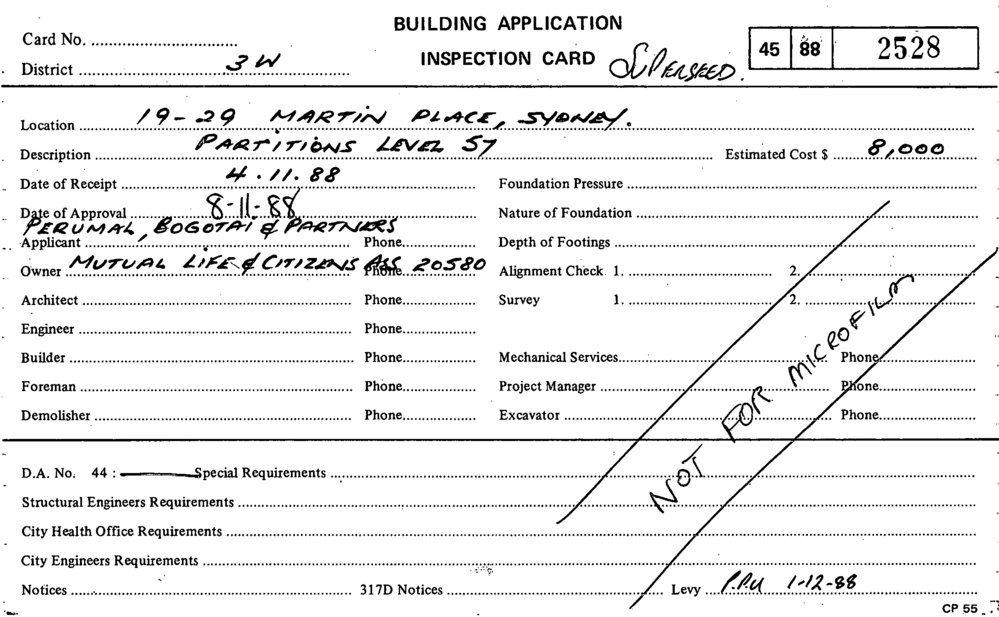 BUILDING APPLICATION
Card No.
INSPECTION CARD SUPERSEED. 45 88 2528
District 3W
Location 19-29 MARTIN PLACE, SYDNEY.
Description PARTITIONS LEVEL 57 Estimated Cost $ 8,000
Date of Receipt 4.11.88 Foundation Pressure
Date of Approval 8-11-88 Nature of Foundation
PERUMAL, BOGOTAI & PARTNERS
Applicant Phone Depth of Footings
Owner MUTUAL LIFE & CITIZENS ASS Phone 20580 Alignment Check 1. 2.
Architect Phone Survey 1. 2.
Engineer Phone
Builder Phone Mechanical Services Phone
Foreman Phone Project Manager Phone
Demolisher Phone Excavator Phone
NOT FOR MICROFILM
D.A. No. 44 : Special Requirements
Structural Engineers Requirements
City Health Office Requirements
City Engineers Requirements
Notices 317D Notices Levy 1-12-88
CP 55